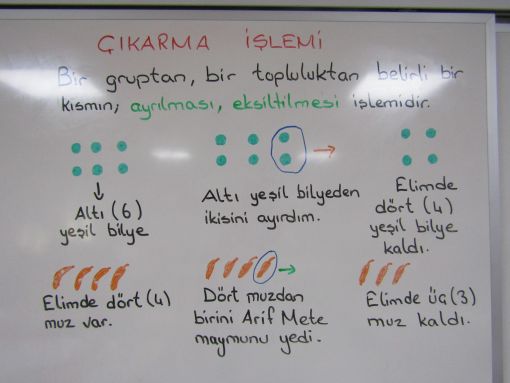 ÇIKARMA İŞLEMİ
Bir gruptan, bir topluluktan belirli bir
kısmın, ayrılması, eksiltilmesi işlemidir.
Altı (6)
yeşil bilye
Altı yeşil bilyeden
ikisini ayırdım.
Elimde
dört (4)
yeşil bilye
kaldı.
Elimde dört (4)
muz var.
Dört muzdan
birini Arif Mete
maymunu yedi.
Elimde üç (3)
muz kaldı.